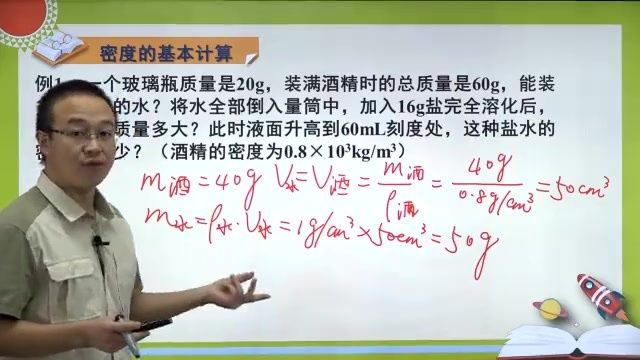 密度的基本计算
例1 一个玻璃瓶质量是20g，装满酒精时的总质量是60g，能装
的水？将水全部倒入量筒中，加入16g盐完全溶化后，
质量多大？此时液面升高到60mL刻度处，这种盐水的
少？（酒精的密度为0.8×10³kg/m³）
m酒=40g V水=V酒=m酒/ρ酒=40g/0.8g/cm³=50cm³
m水=ρ水·V水=1g/cm³×50cm³=50g